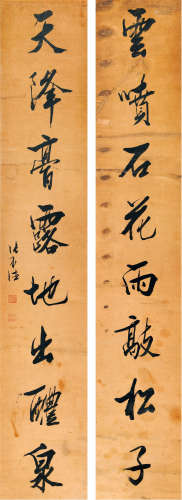 雲噴石花雨敲松子
天降膏露地出醴泉